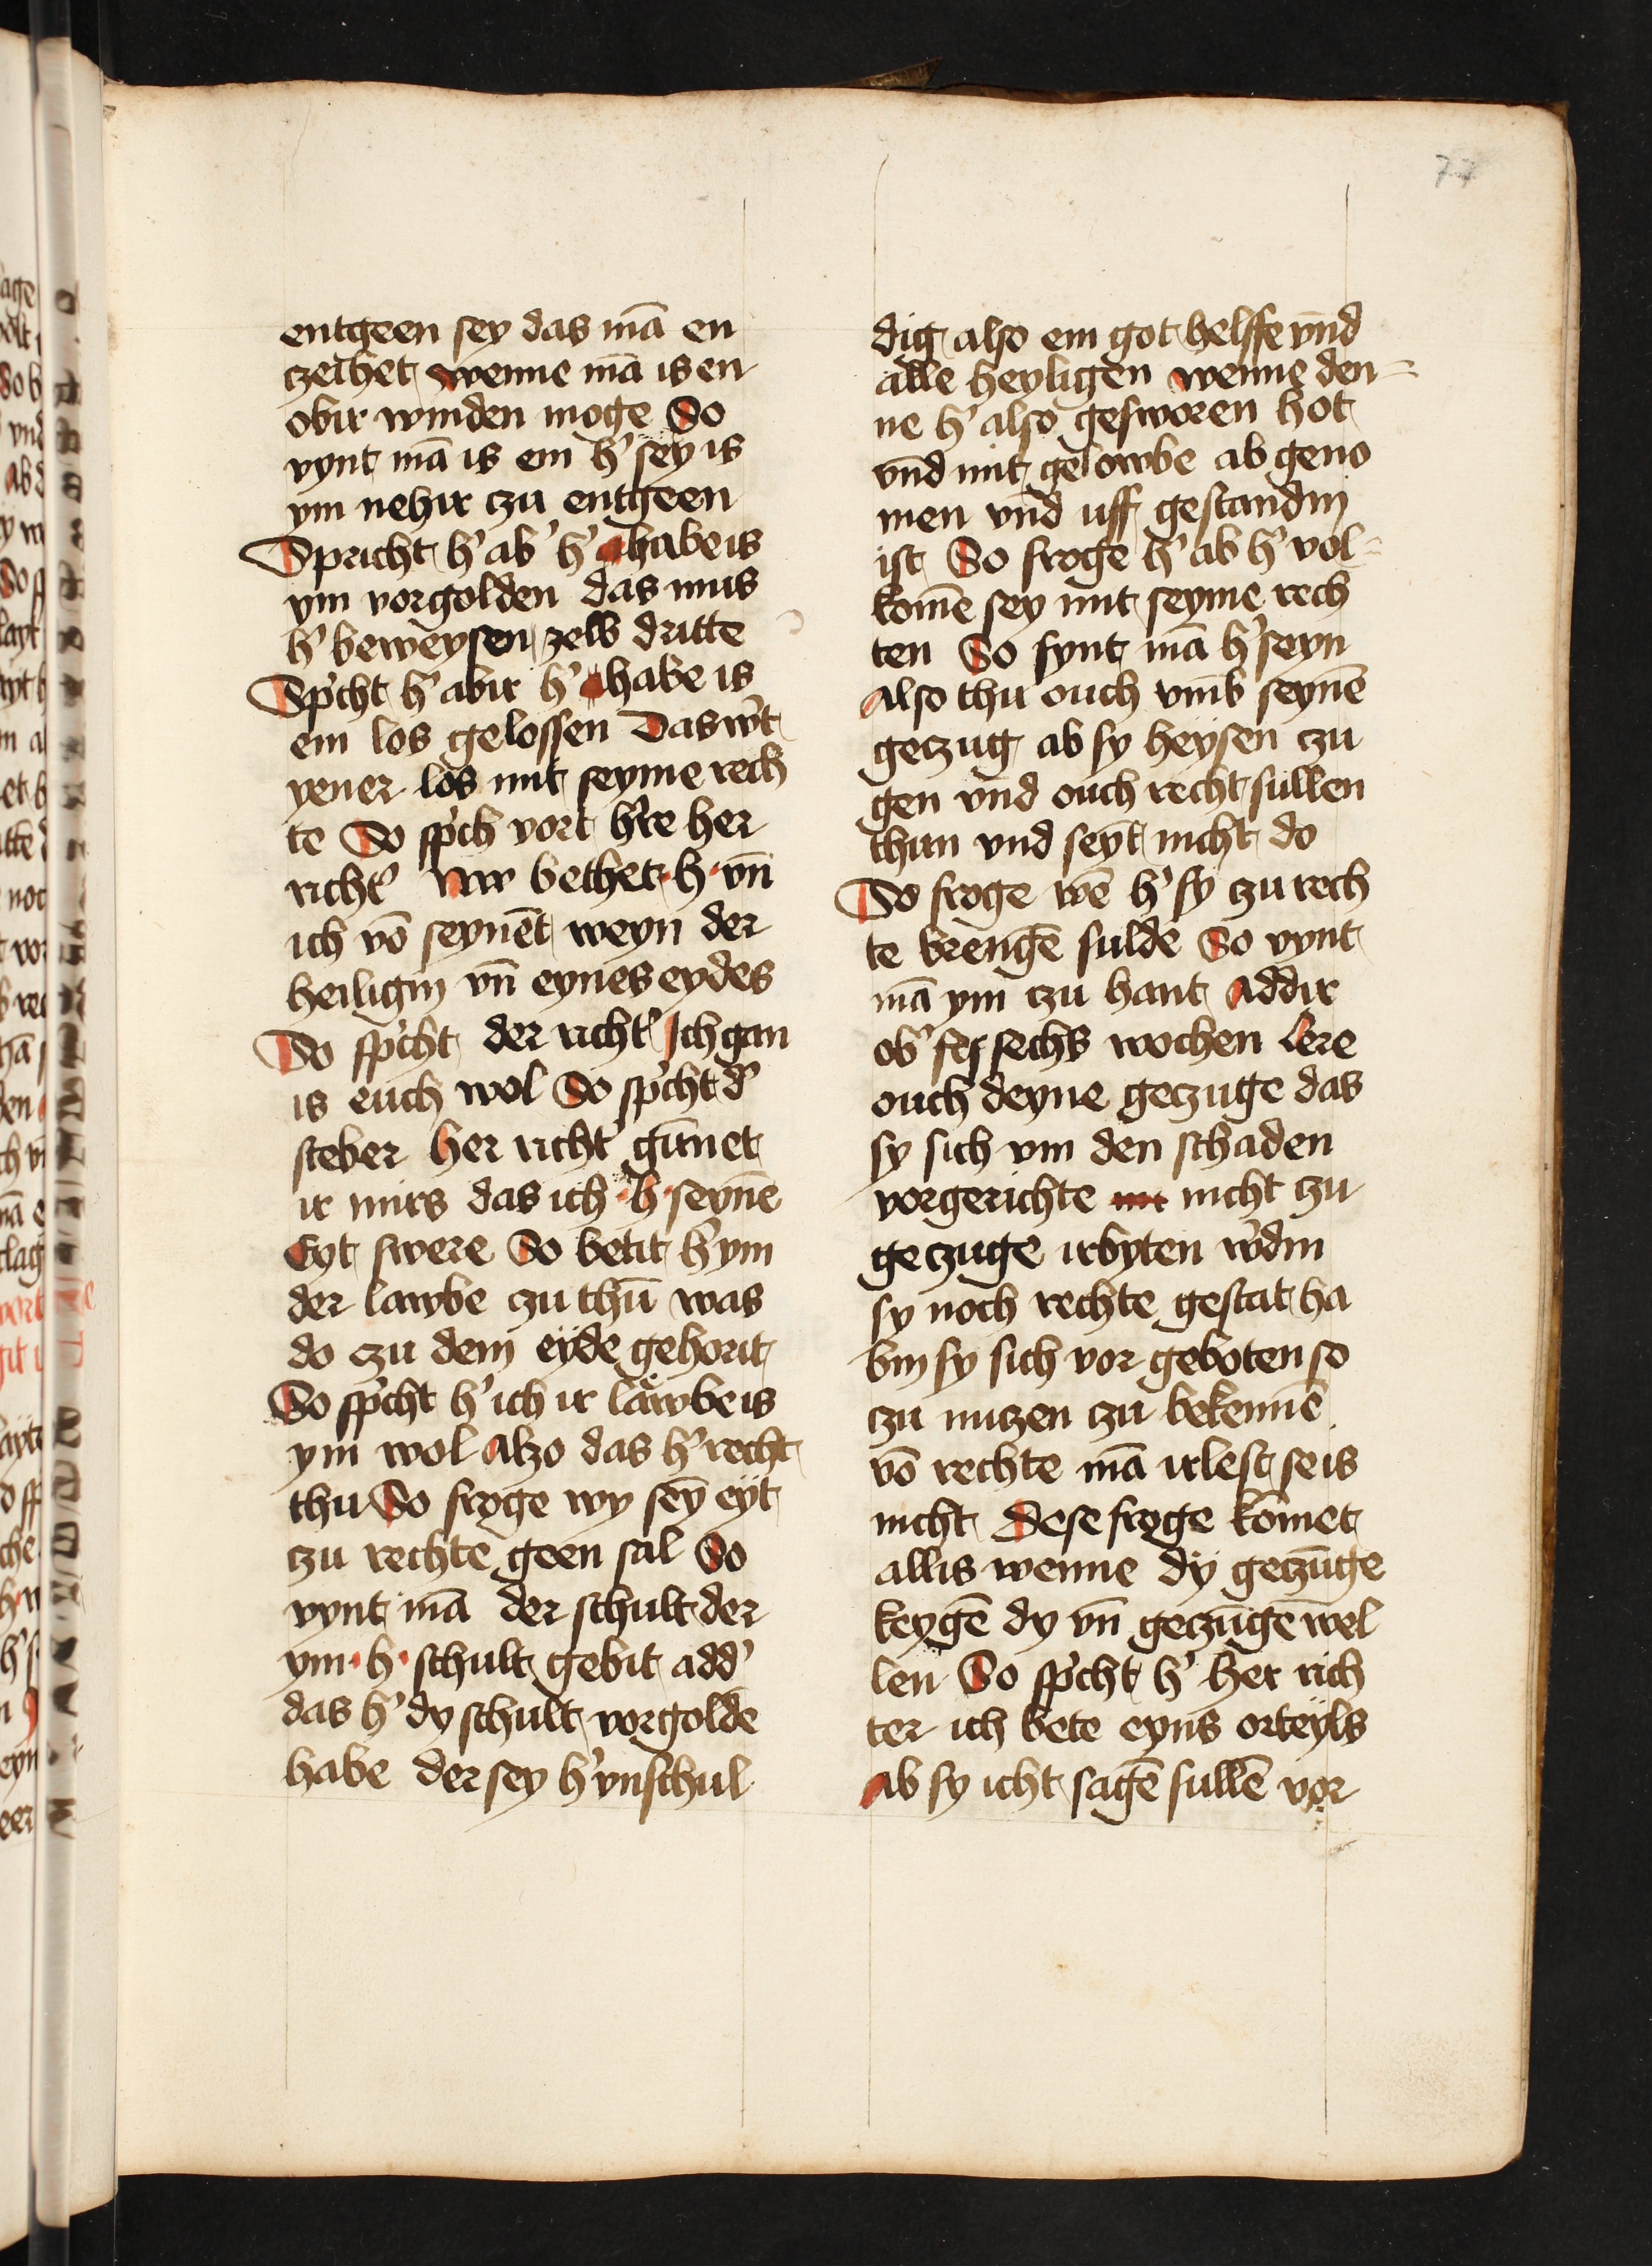 77
entgeen sey das mā en
czeihet wenne mā is en
obir winden moge So
vynt mā is em h' sey is
ym nehir czu entgeen
Spricht h' ab' h' habe is
ym vorgolden das mus
h' beweysen zelb dritte
Sp'cht h' abir h' habe is
em los gelossen Das w't
yener los mit seyme rech
te So sp'ch vort h're her
richt' Mir bethet · h · vn̄
ich vō seynēt weyn der
heiligin vn̄ eynes eydes
So sp'cht der richt' Ich gan
is euch wol So sp'cht d'
steber her richt' gūnet
ir mirs das ich · h · seynē
Eyt swere So betit h' ym
der lawbe czu thū was
do czu dem eyde gehorit
So sp'cht h' ich ir lawbe is
ym wol Alzo das h' recht
thu So froge wy sey̅ eyt
czu rechte geen sal So
vynt mā der schult der
ym · h · schult gebit add'
das h' dy schult vorgoldē
habe der sey h' vnschul
dig also em got helffe vn̄d
alle heyligen wenne den
ne h' also gesworen hot
vn̄d mit gelowbe ab geno
men vn̄d uff gestandin
ist So froge h' ab h' vol
komē sey mit seyme rech
ten So fynt mā h' seyn
Also thu ouch vm̄b seynē
geczug ab sy heysen czu
gen vn̄d ouch recht sullen
thun vnd seyt nicht do
So froge wē h' sy czu rech
te brengē sulde So vynt
mā ym czu hant Addir
ob' sechs wochen Lere
ouch deyne geczuge das
sy sich vm den schaden
vorgerichte nicht czu
geczuge irbyten w'din
sy noch rechte gestat ha
bin sy sich vor geboten so
czu nuczen czu bekennē
vō rechte mā irlest se is
nicht Dese froge komet
allis wenne dy geczuge
keygē dy vn̄ geczugē wel
len So sp'cht h' Her rich
ter ich bete eyns orteyls
Ab sy icht sagē sullē vor